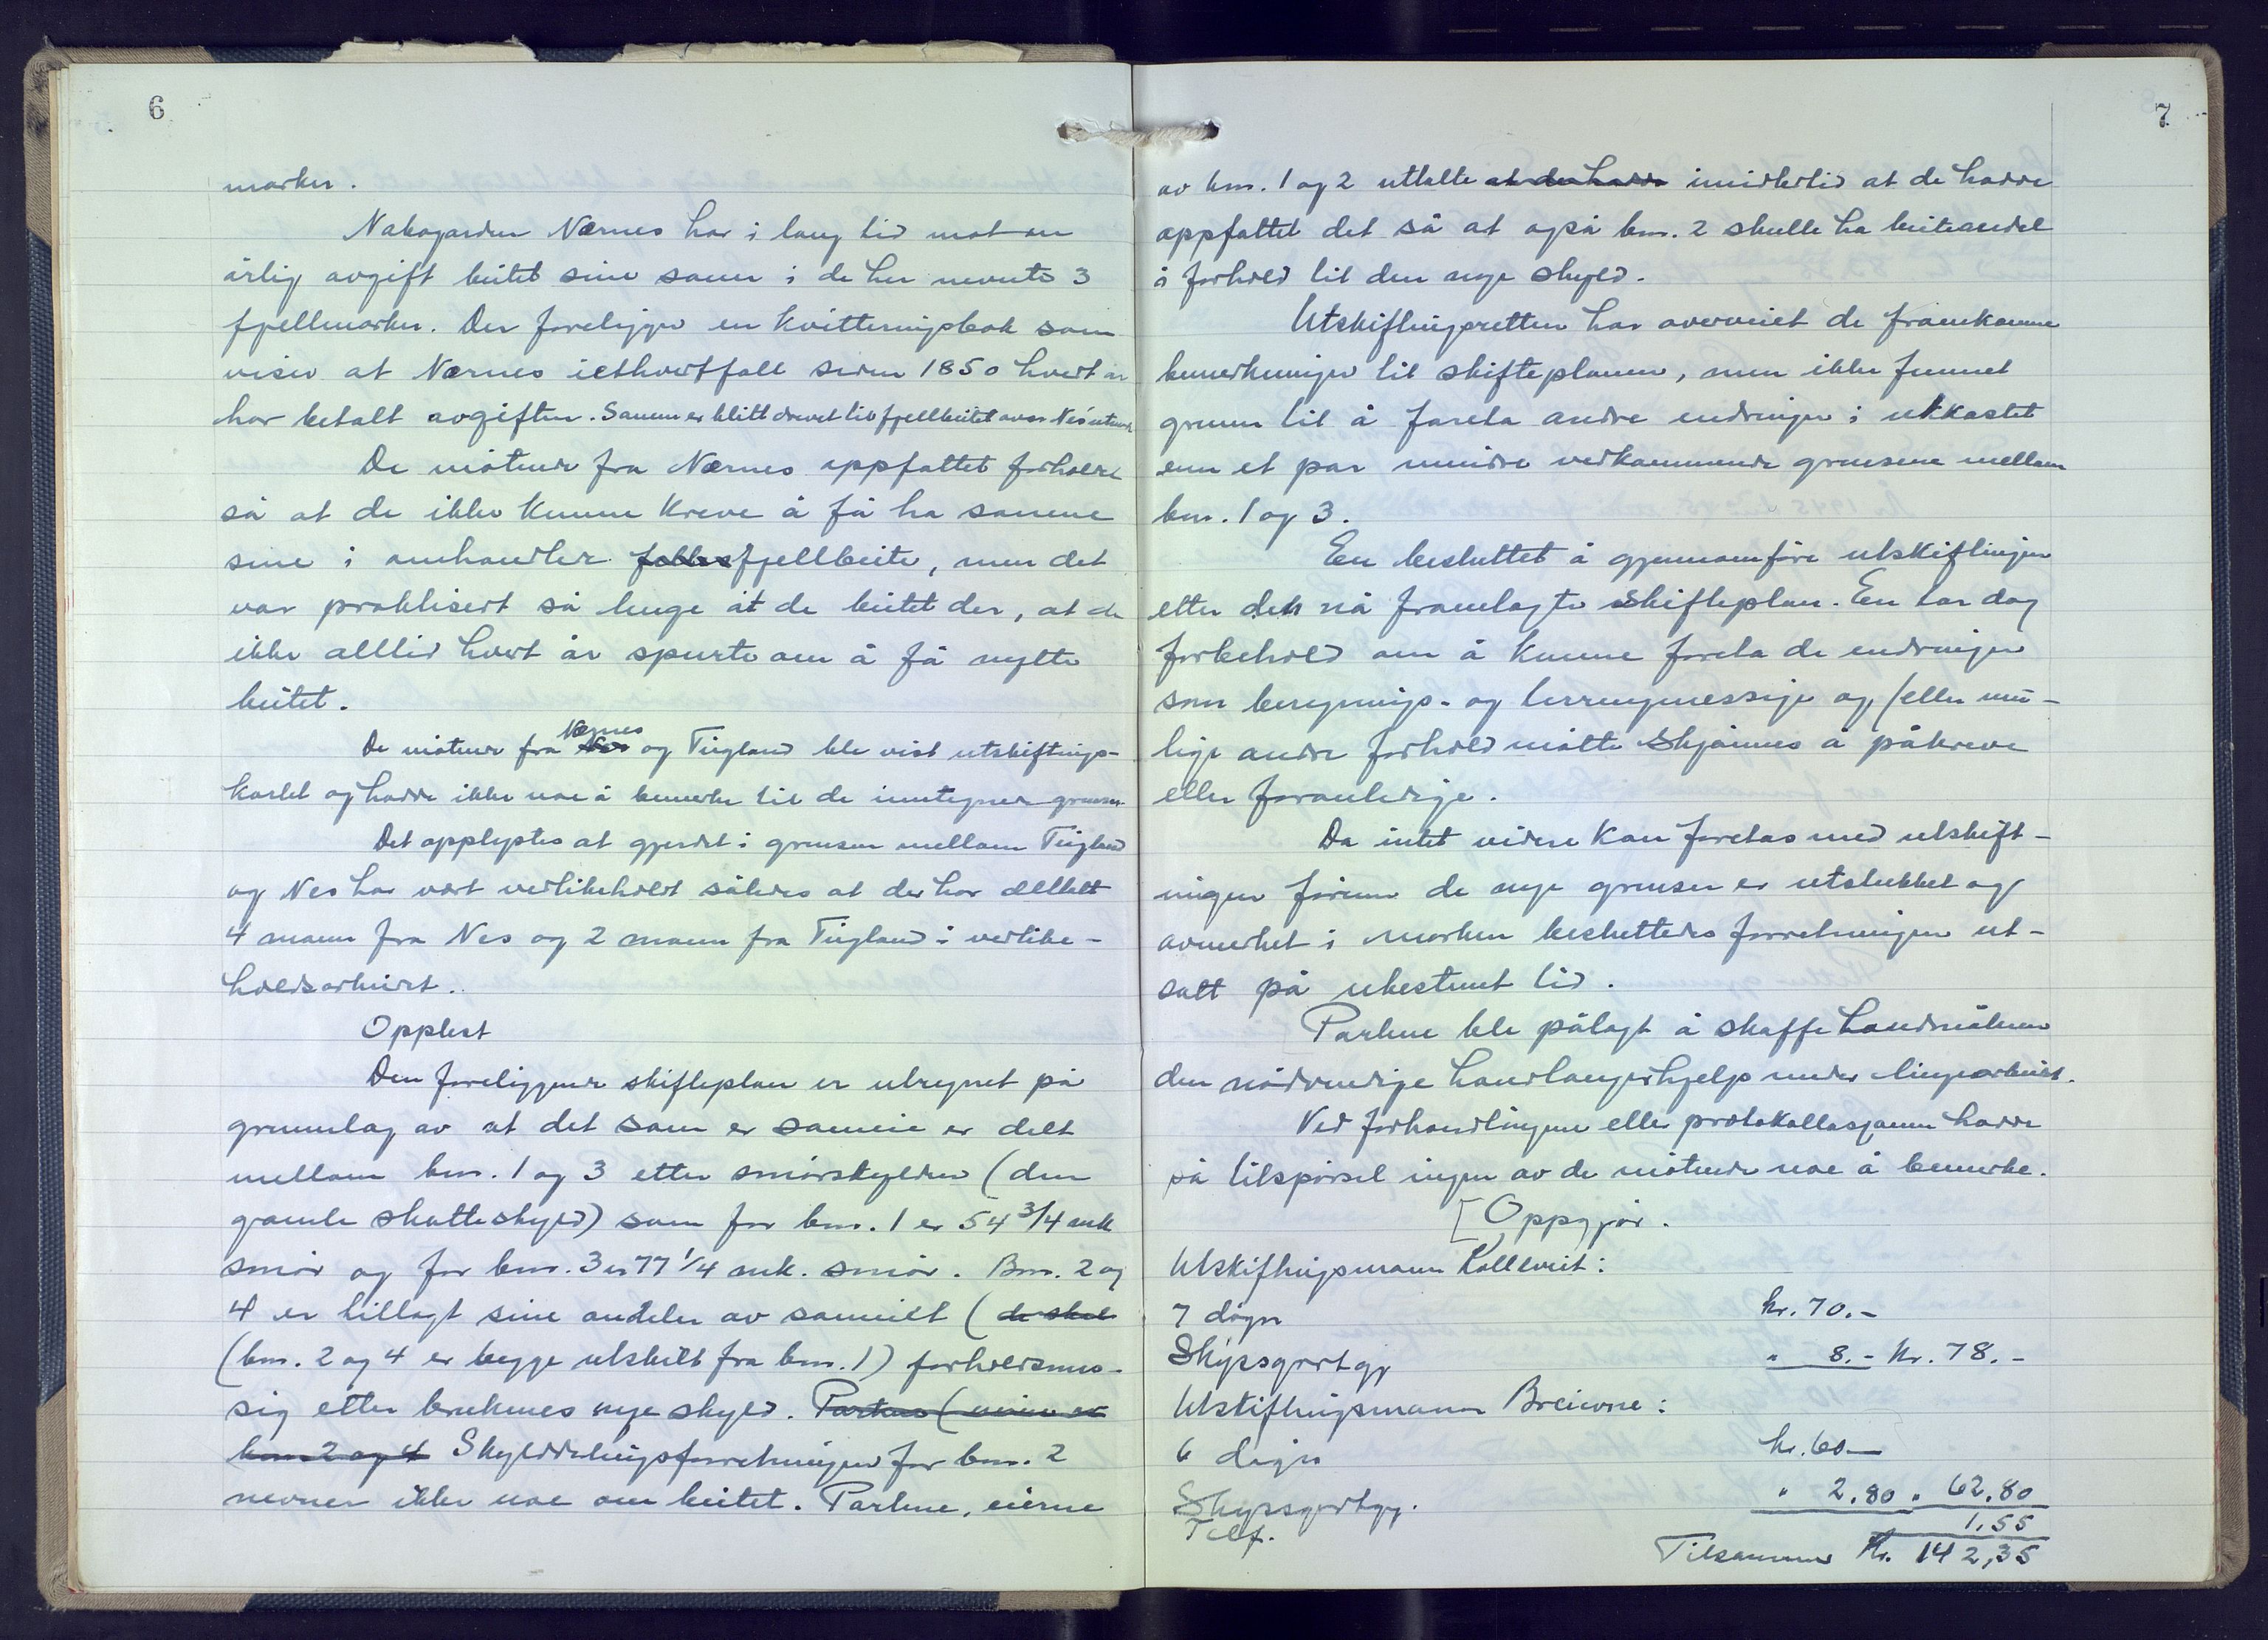 6
marker.
Nabogarden Nærnes har i lang tid mot en
årlig avgift beitet sine sauer i de her nevnte 3
fjellmarker. Der foreligger en kvitteringsbok som
viser at Nærnes iethvertfall siden 1850 hvert år
har betalt avgiften. Sauene er blitt drevet til fjellbeitet over Nes'
De møtende fra Nærnes oppfattet forholdet
så at de ikke kunne kreve å få ha sauene
sine i omhandlede felles fjellbeite, men det
var praktisert så lenge at de beitet der, at de
ikke alltid hvert år spurte om å få nytte
beitet.
De møtende fra Nes Nærnes og Tirgland ble vist utskiftings-
kartet og hadde ikke noe å bemerke til de inntegnede grenser
Det opplystes at gjerdet i grensen mellom Tirgland
og Nes har vært vedlikeholdt således at der har deltatt
4 mann fra Nes og 2 mann fra Tirgland i vedlike-
holdsarbeidet.
Opplest
Den foreliggende skifteplan er utregnet på
grunnlag av at det som er sameie er delt
mellom bnr. 1 og 3 etter smørskylden (den
gamle skatteskyld) som for bnr. 1 er 54 3/4 mk
smør og for bnr. 3 er 77 1/4 mk. smør. Bnr. 2 og
4 er tillagt sine andeler av sameiet ( de skal
(bnr. 2 og 4 er begge utskilt fra bnr. 1) forholdsmes-
sig etter brukenes nye skyld. Partene (
bnr. 2 og 4 Skylddelingsforretningen for bnr. 2
nevner ikke noe om beitet. Partene, eierne
7
av bnr. 1 og 2 uttalte at der hadde imidlertid at de hadde
oppfattet det så at også bnr. 2 skulle ha beiteandel
i forhold til den nye skyld.
Utskiftingsretten har overveiet de framkomne
bemerkninger til skifteplanen, men ikke funnet
grunn til å foreta andre endringer i utkastet
enn et par mindre vedkommende grensene mellom
bnr. 1 og 3.
En besluttet å gjennomføre utskiftingen
etter den nå framlagte skifteplan. En tar dog
forbehold om å kunne foreta de endringer
som beregnings- og terrengmessige og/eller mu-
lige andre forhold måtte skjønnes å påkreve
eller foranledige.
Da intet videre kan foretas med utskift-
ningen førenn de nye grenser er utstukket og
avmerket i marken besluttedes forretningen ut-
satt på ubestemt tid.
Partene ble pålagt å skaffe landmåleren
den nødvendige handlangerhjelp under linjearbeidet.
Ved forhandlingene eller protokollasjonen hadde
på tilspørsel ingen av de møtende noe å bemerke.
[Oppgjør.
Utskiftingsmann Kalleveit:
7 døgn kr. 70.-
Skyssgodtgj " 8.- kr. 78.-
Utskiftingsmann Breivone:
6 døgn kr. 60—
Skyssgodtgj. " 2.80 " 62.80
Telf. 1.55
Tilsammen Kr. 142,35